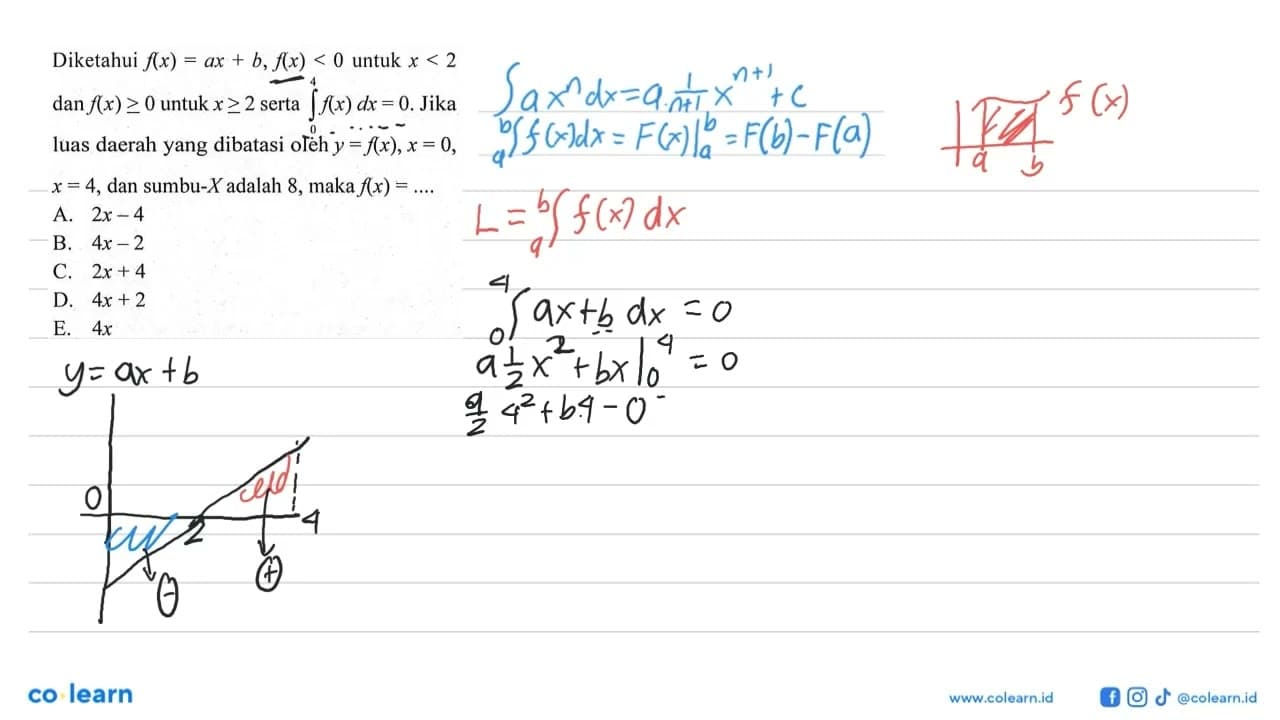 Diketahui f(x) = ax + b, f(x) < 0 untuk x < 2
dan f(x) ≥ 0 untuk x ≥ 2 serta ∫₀⁴ f(x) dx = 0. Jika
luas daerah yang dibatasi oleh y = f(x), x = 0,
x = 4, dan sumbu-X adalah 8, maka f(x) = ....
A. 2x – 4
B. 4x – 2
C. 2x + 4
D. 4x + 2
E. 4x
y = ax + b
0
2
4
⊖
⊕
∫ax^n dx = a. 1/(n+1) x^(n+1) + c
ₐᵇ∫f(x)dx = F(x)|ₐᵇ = F(b) - F(a)
f(x)
a b
L = ₐᵇ∫ f(x) dx
₀⁴∫ ax + b dx = 0
a 1/2 x² + bx |₀⁴ = 0
a/2 4² + b.4 - 0
co·learn
www.colearn.id
@colearn.id